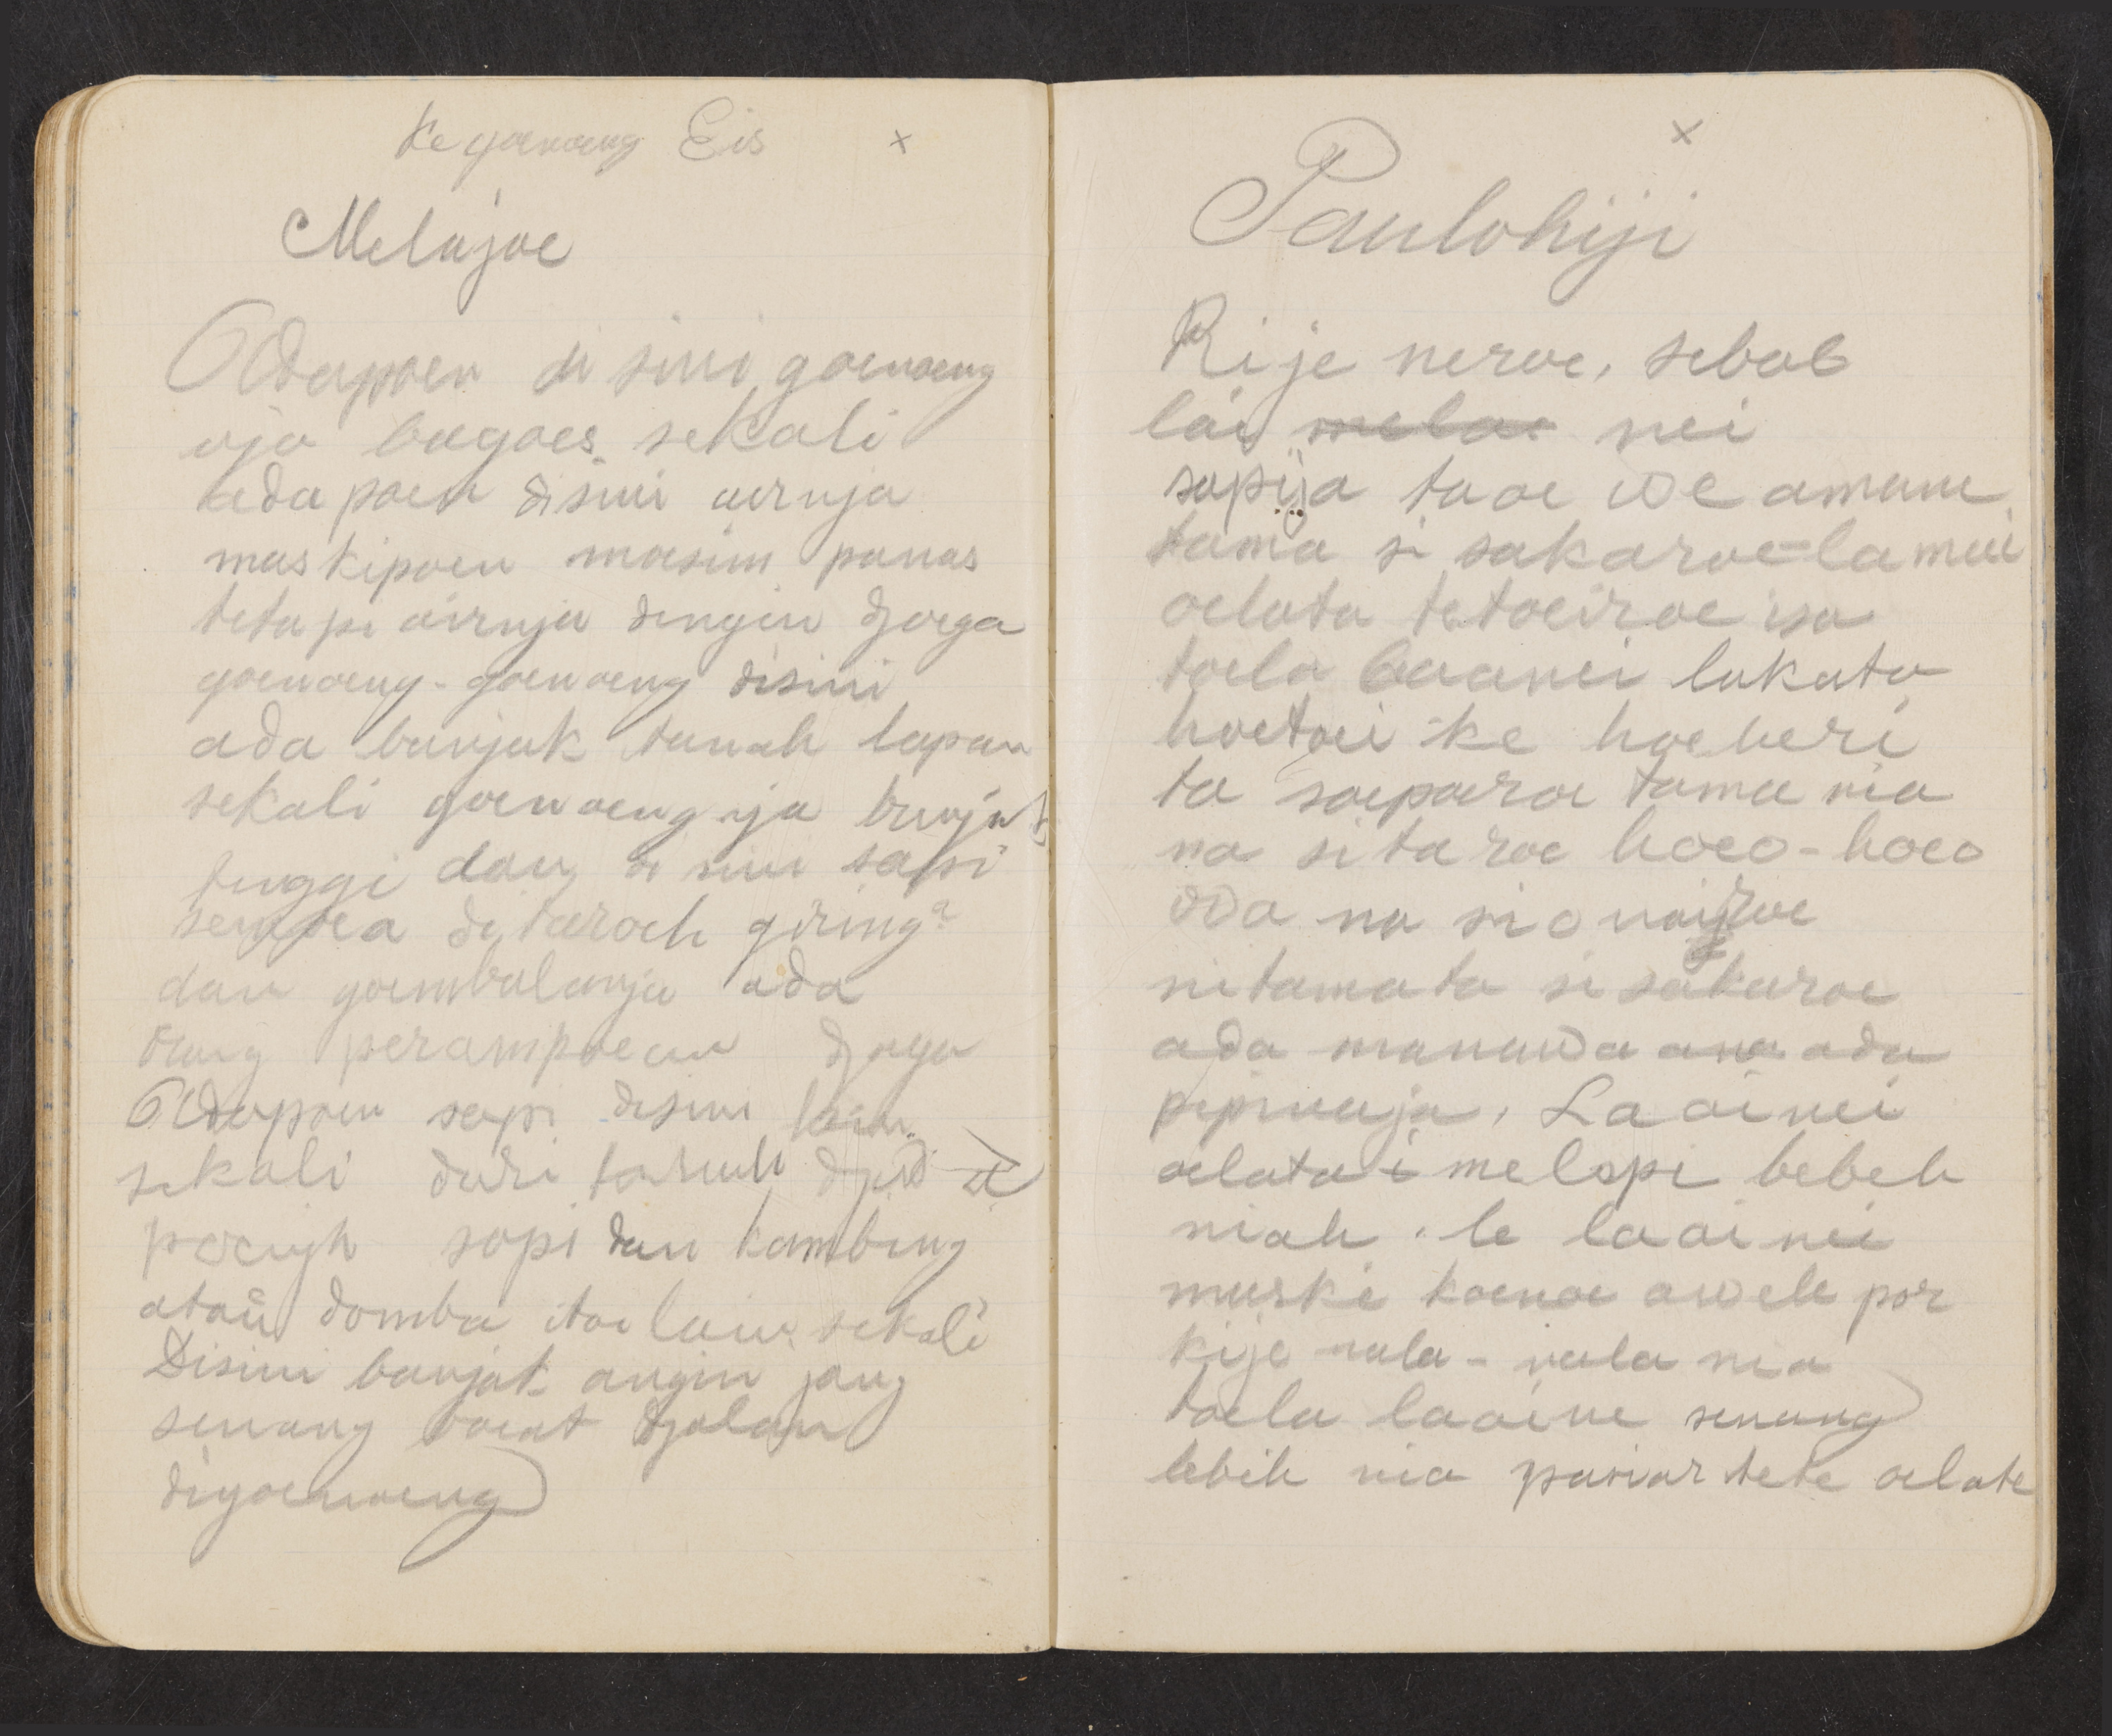 Ke goenoeng Eis x
Melajoe
Adapoen di sini goenoeng
nja bagoes sekali
adapoen disini aernja
maskipoen moesim panas
tetapi airnja dingin djoega
goenoeng-goenoeng disini
ada banjak tanah lapan
sekali goenoengnja banjak
tinggi dan di sini sapi
semoea di taroeh giring²
dan goembalanja ada
orang perampoean djaga
Adapoen sapi disini lain
sekali dari tanah
sapi dan kambing
atau domba itoe lain sekali
Disini banjak angin jang
senang boeat djalan
digoenoeng
x
Paulohiji
Kije neroe, sebab
lai melai nei
sapija taoe we amane
tama si sakaroe-lamei
oelata tetoeiroe isa
toela baanei lakata
hoetoei ke hoeheri
ta soeparoe tama nia
na sitaroe hoeo-hoeo
oda na si
nitamata si sakaroe
ada manawa ana ada
pipinaja, Laainei
oelata i melopi bebeh
niah. le laainei
maski koenoe aweh por
kije nala-nala nia
toela laaine senang
lebih nia pasiar tete oelate